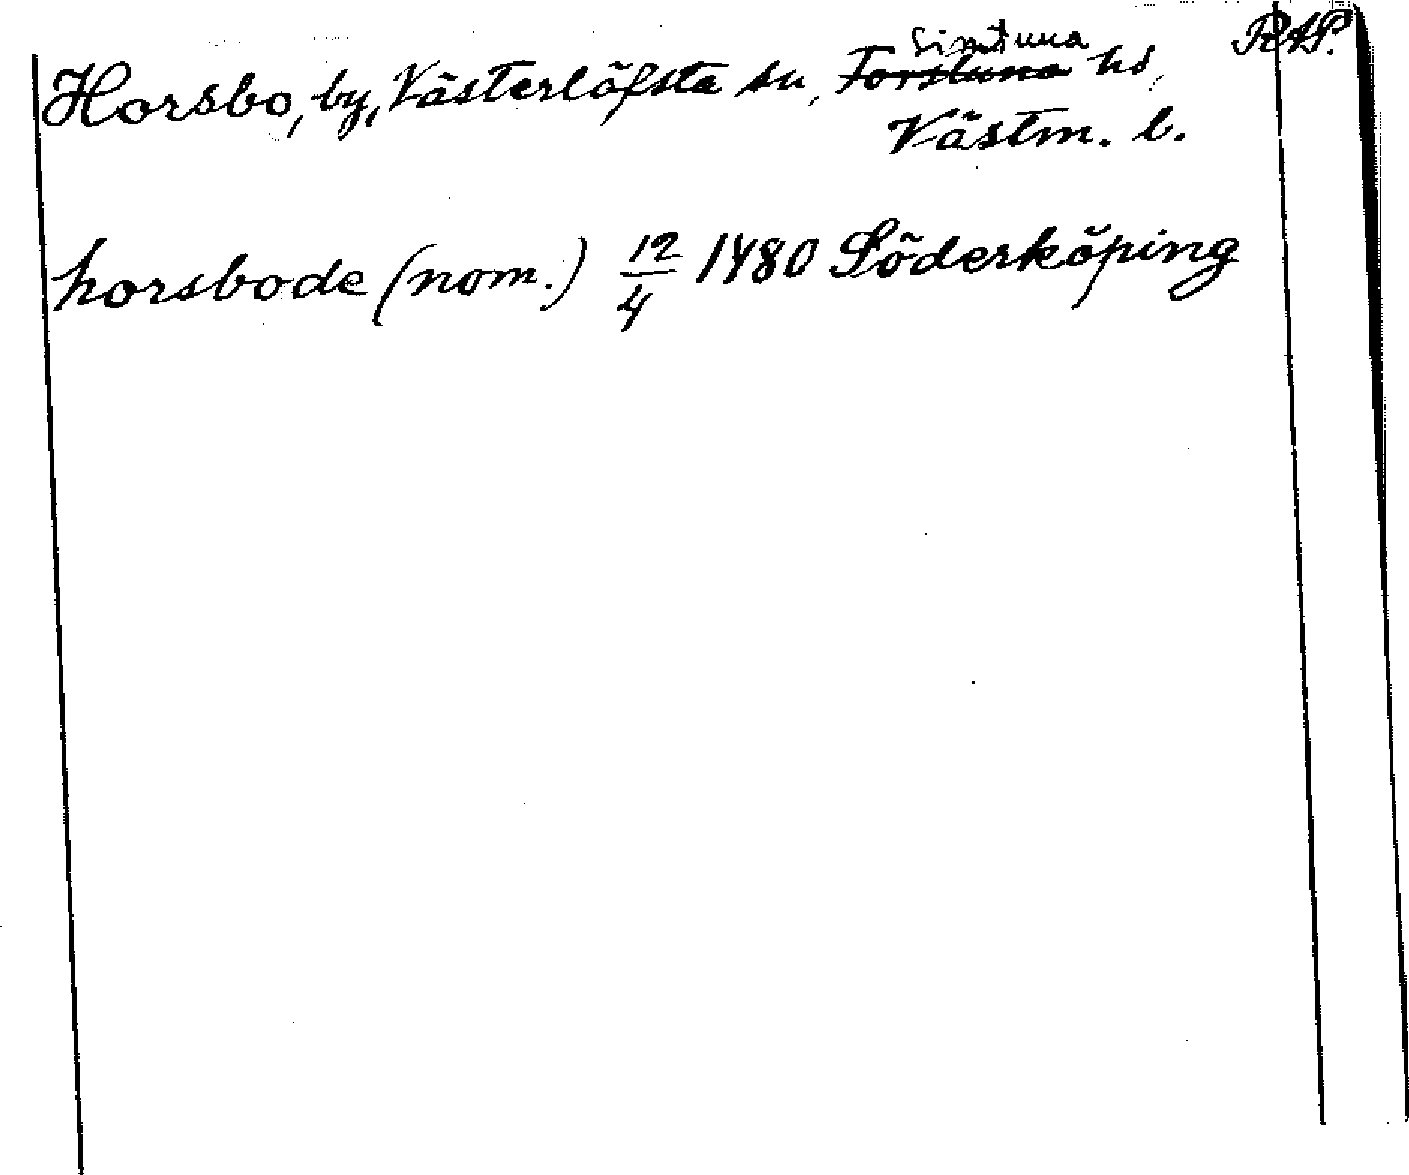 Horsbo, by, Västerlöfsta sn, Simtuna ~~Torstuna~~ hd, RAP.
Västm. l.
horsbode (nom.) 12/4 1480 Söderköping